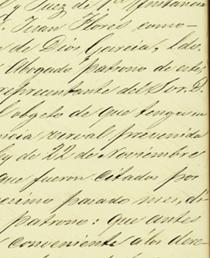 y Juez de 1ª Instancia
Juan Flores como
de Dios Garcia, Ldo.
Abogado patrono de este
representante del Sor. D.
objeto de que tenga
verbal, prevenida
ley de 22 de Noviembre
que fueron citados por
procsimo pasado mes, di
patrono: que antes
conveniente á los dere